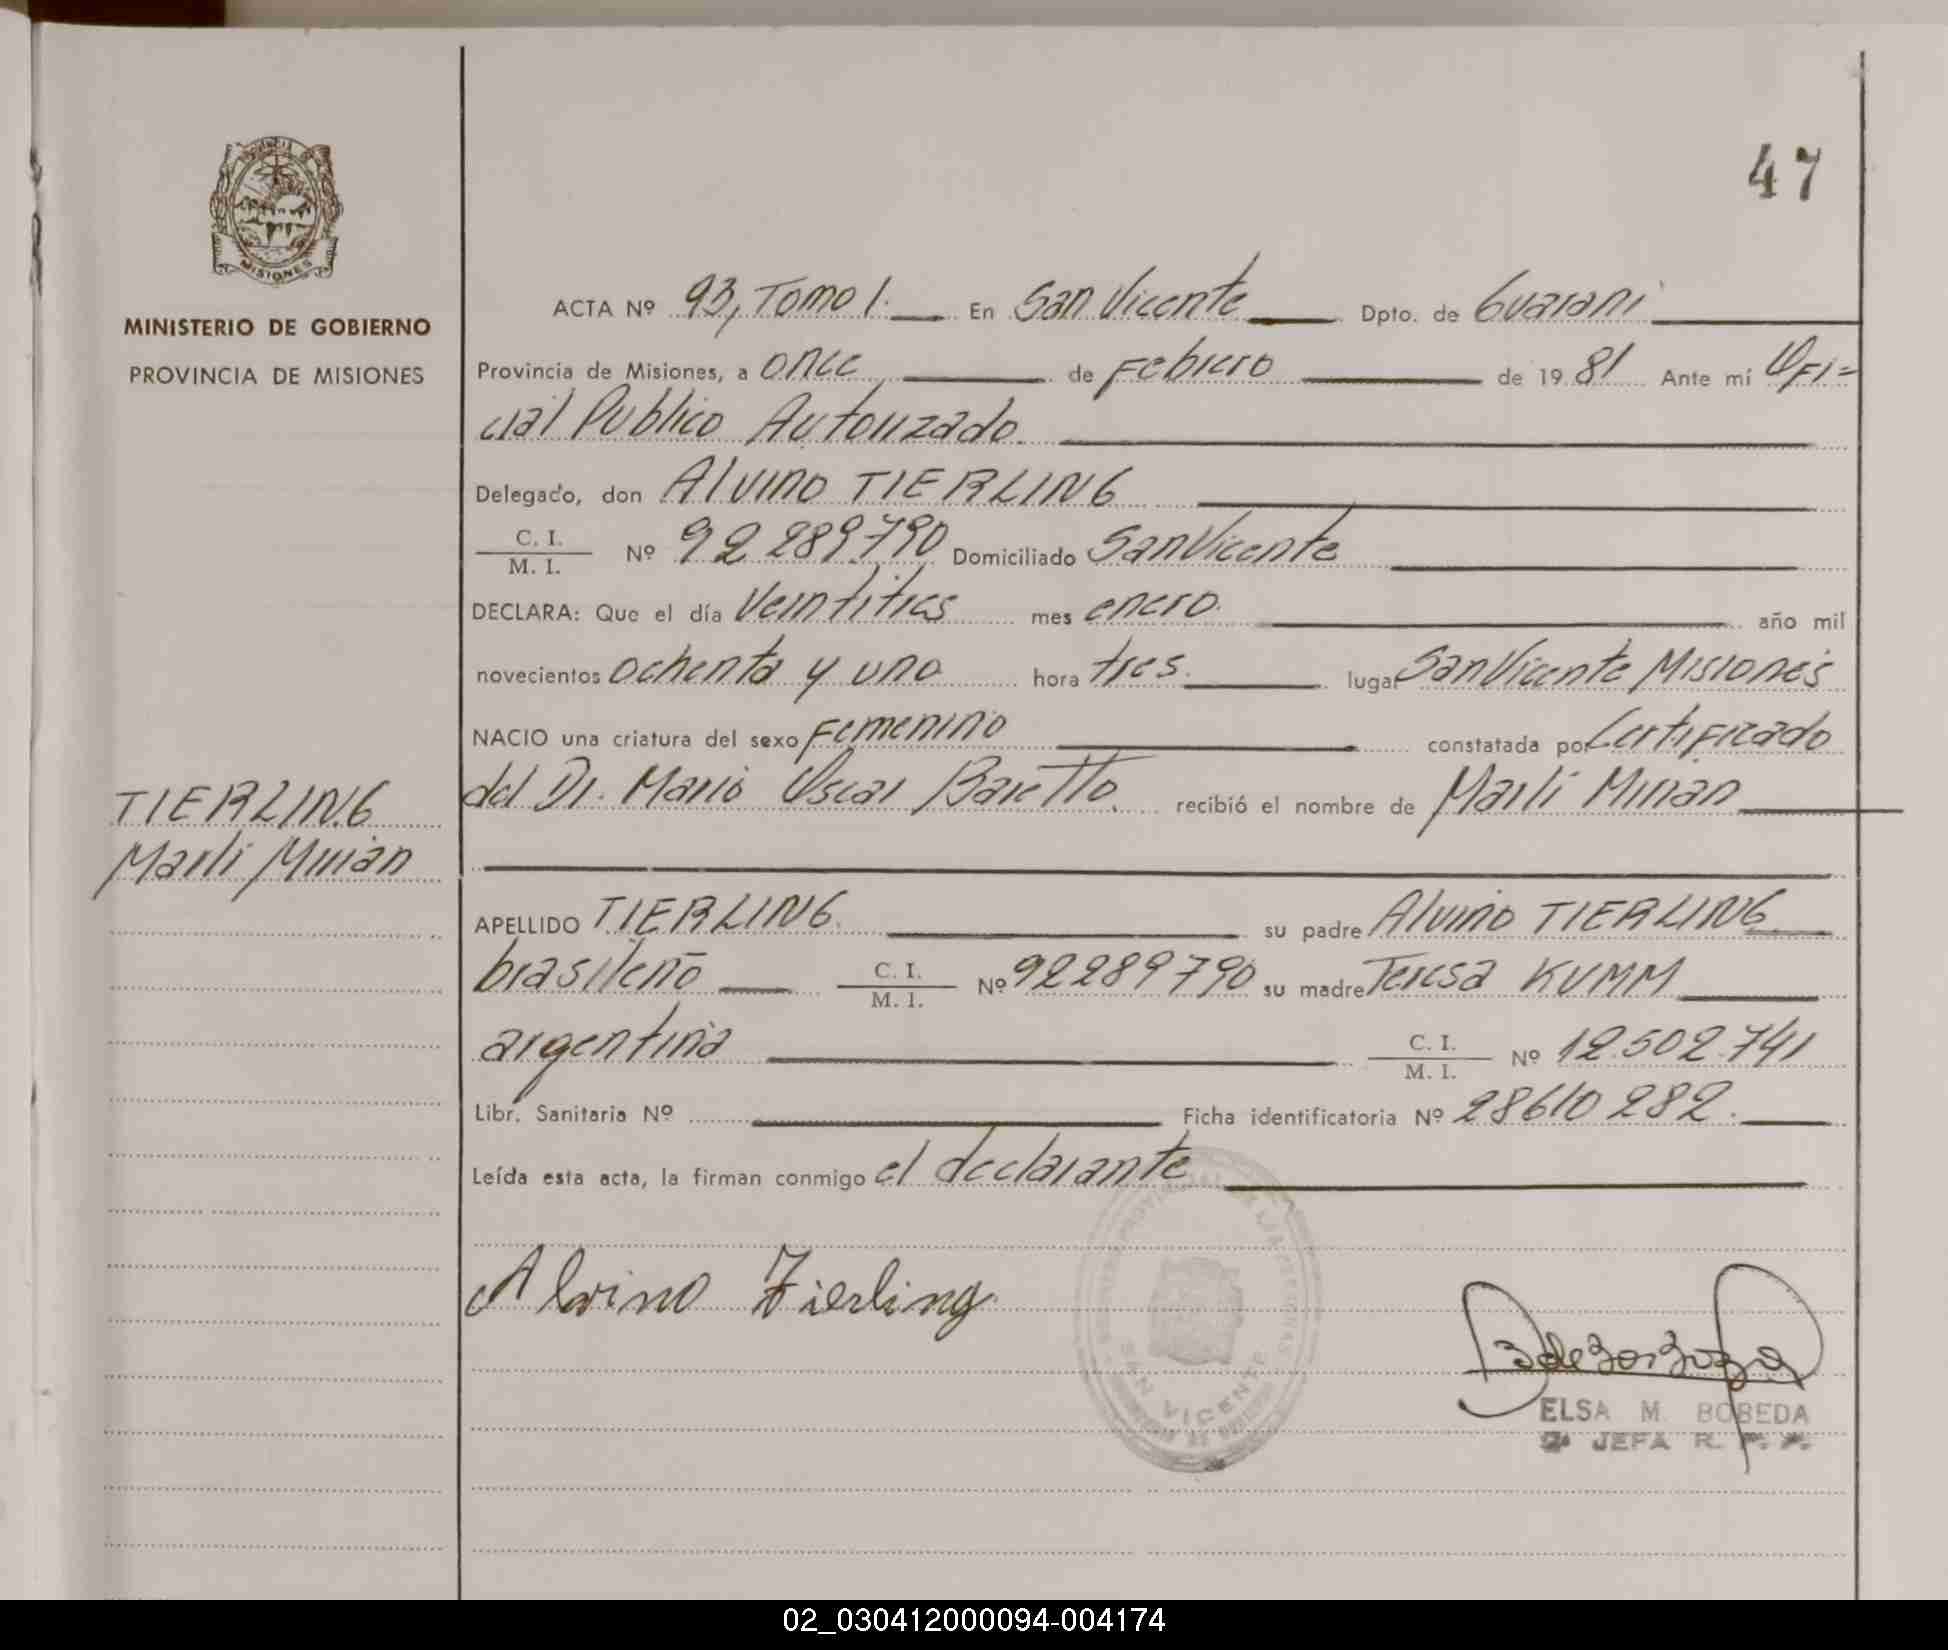 47
PROVINCIA DE
MISIONES
MINISTERIO DE GOBIERNO
PROVINCIA DE MISIONES
ACTA Nº 93, Tomo I. En San Vicente Dpto. de Guarani
Provincia de Misiones, a once de Febrero de 1981 Ante mí Ofi=
cial Publico Autorizado.
Delegado, don Alvino TIERLING
C. I. / M. I. Nº 92.289.790 Domiciliado San Vicente
DECLARA: Que el día Veintitres mes enero. año mil
novecientos ochenta y uno hora tres. lugar San Vicente Misiones
NACIO una criatura del sexo Femenino constatada por Certificado
del Dr. Mario Oscar Baretto. recibió el nombre de Marli Mirian
TIERLING
Marli Mirian
APELLIDO TIERLING. su padre Alvino TIERLING
brasileño C. I. / M. I. Nº 92289790 su madre Teresa KUMM
argentina C. I. / M. I. Nº 12.502.741
Libr. Sanitaria Nº Ficha identificatoria Nº 28610282.
Leída esta acta, la firman conmigo el declarante
Alvino Tierling
SAN VICENTE
ELSA M. BOBEDA
JEFA R.
02_030412000094-004174